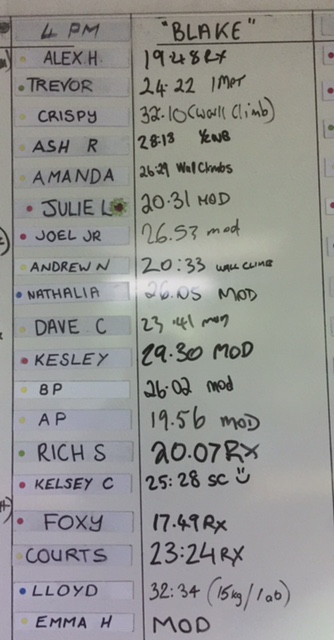 4 PM "BLAKE"
ALEX.H 19:48 RX
TREVOR 24.22 1MPT
CRISPY 32.10 (Wall Climb)
ASH R 28:13
AMANDA 26:29 Wall Climbs
JULIE L 20.31 MOD
JOEL JR 26.53 mod
ANDREW N 20:33 WALL CLIMB
NATHALIA 26.05 MOD
DAVE C 23.41 mod
KESLEY 29.30 MOD
BP 26.02 mod
AP 19.56 MOD
RICH S 20.07 RX
KELSEY C 25:28 SC
FOXY 17.49 RX
COURTS 23:24 RX
LLOYD 32:34 (15kg/1ab)
EMMA H MOD